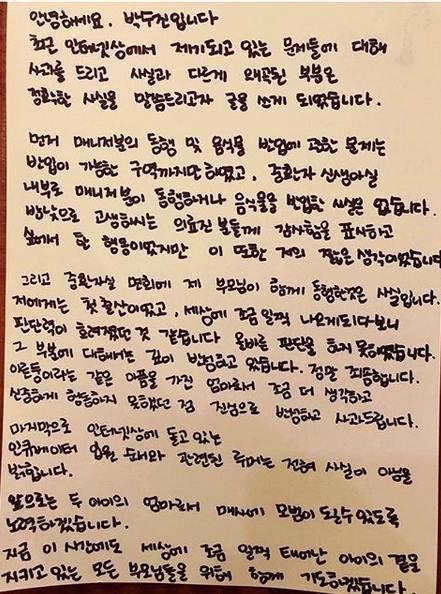 안녕하세요. 박수진입니다
최근 인터넷상에서 제기되고 있는 문제들에 대해
사과를 드리고 사실과 다르게 왜곡된 부분은
정확한 사실을 말씀드리고자 글을 쓰게 되었습니다.
먼저 매니저분의 동행 및 음식물 반입에 관한 문제는
반입이 가능한 구역까지만하였고, 중환자 신생아실
내부로 매니저분이 동행하거나 음식물을 반입한 사실은 없습니다.
밤낮으로 고생하시는 의료진 분들께 감사함을 표시하고
싶어서 한 행동이였지만 이 또한 저의 짧은 생각이였습니다
그리고 중환자실 면회에 제 부모님이 함께 동행한것은 사실입니다.
저에게는 첫 출산이였고, 세상에 조금 일찍 나오게되다보니
판단력이 흐려졌던 것 같습니다 올바른 판단을 하지 못하였습니다.
그 부분에 대해서는 깊이 반성하고 있습니다. 정말 죄송합니다.
이른둥이라는 같은 아픔을 가진 엄마로서 조금 더 생각하고
신중하게 행동하지 못했던 점 진심으로 반성하고 사과드립니다.
마지막으로 인터넷상에 돌고 있는
인큐베이터 입원 순서와 관련된 루머는 전혀 사실이 아님을
밝힙니다.
앞으로는 두 아이의 엄마로서 매사에 모범이 되질수 있도록
노력하겠습니다.
지금 이 시간에도 세상에 조금 일찍 태어난 아이의 곁을
지키고 있는 모든 부모님들을 위해 함께 기도하겠습니다.